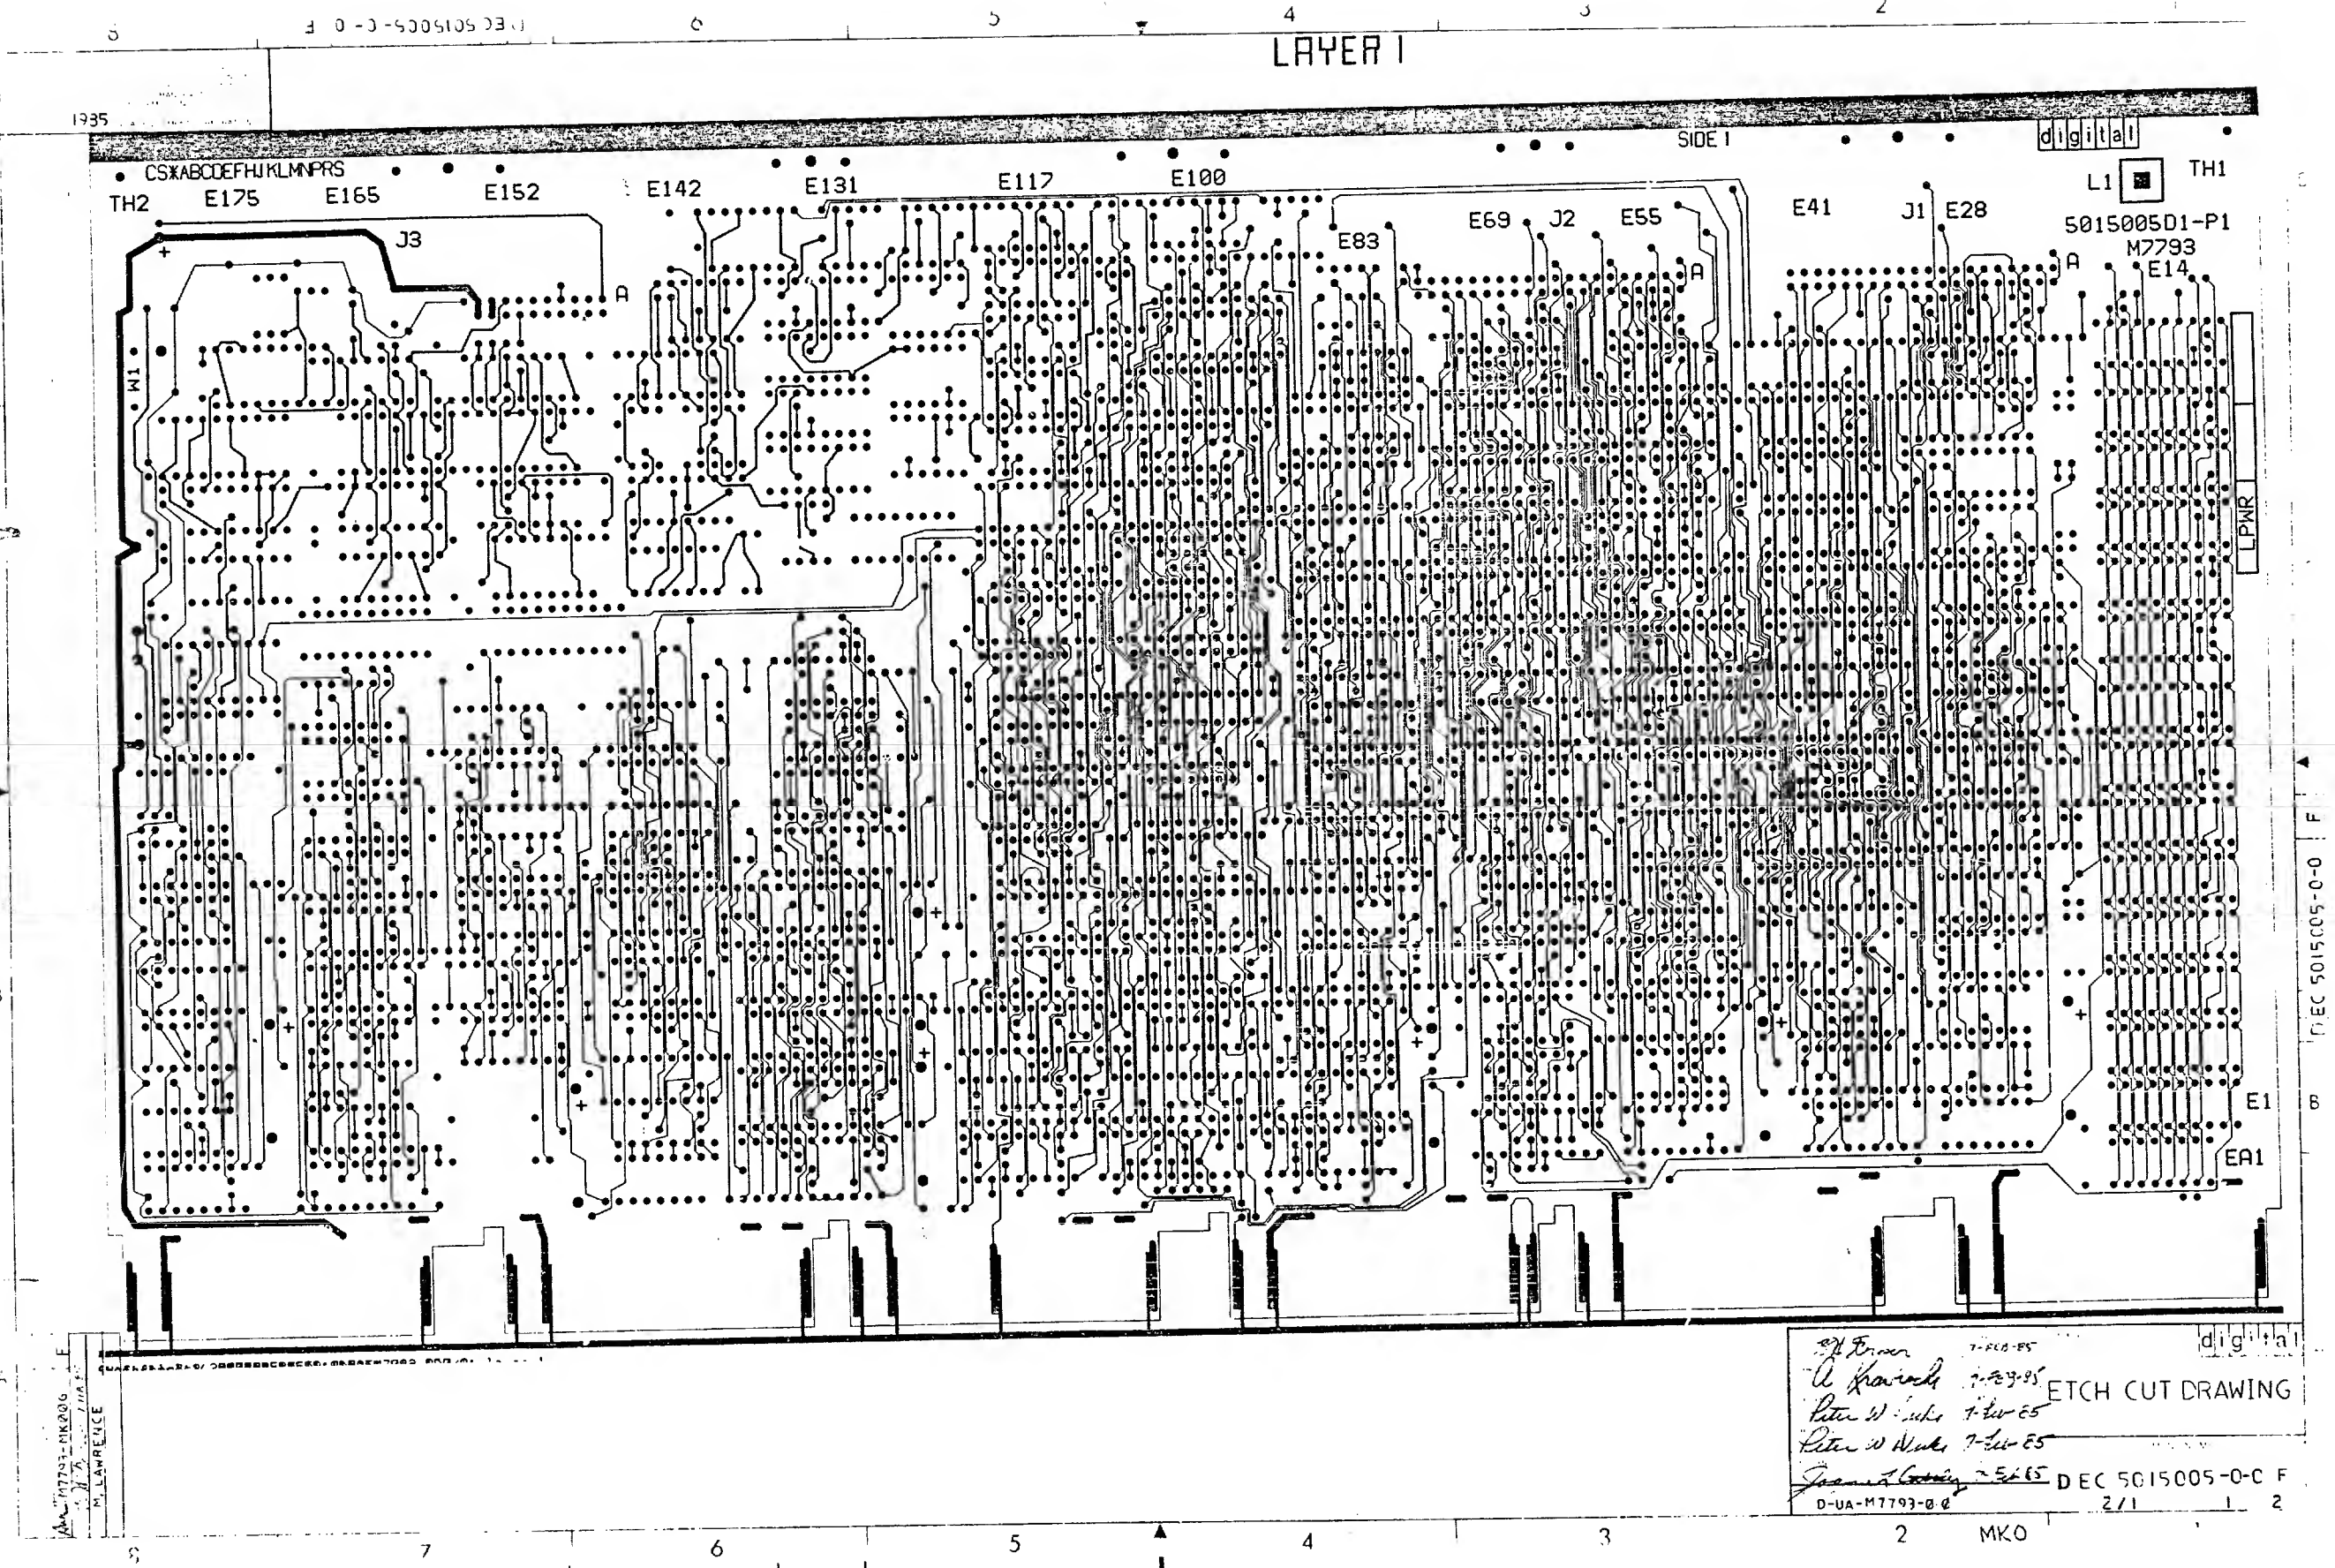 DEC 5015005-0-0 F
8 6 5 4 3 2
LAYER 1
1985
SIDE 1
digital
CS*ABCDEFHJKLMNPRS
TH2 E175 E165 E152 E142 E131 E117 E100
L1 TH1
J3 E83 E69 J2 E55 E41 J1 E28
5015005D1-P1
M7793
E14
A A A
W1
LPWR
F
DEC 5015005-0-0
E1
B
EA1
digital
7-FEB-85
ETCH CUT DRAWING
Peter W
Peter W
DEC 5015005-0-0 F
D-UA-M7793-0-0
2/1 1 2
M7793-MK006
M. LAWRENCE
8 7 6 5 4 3 2
MKO